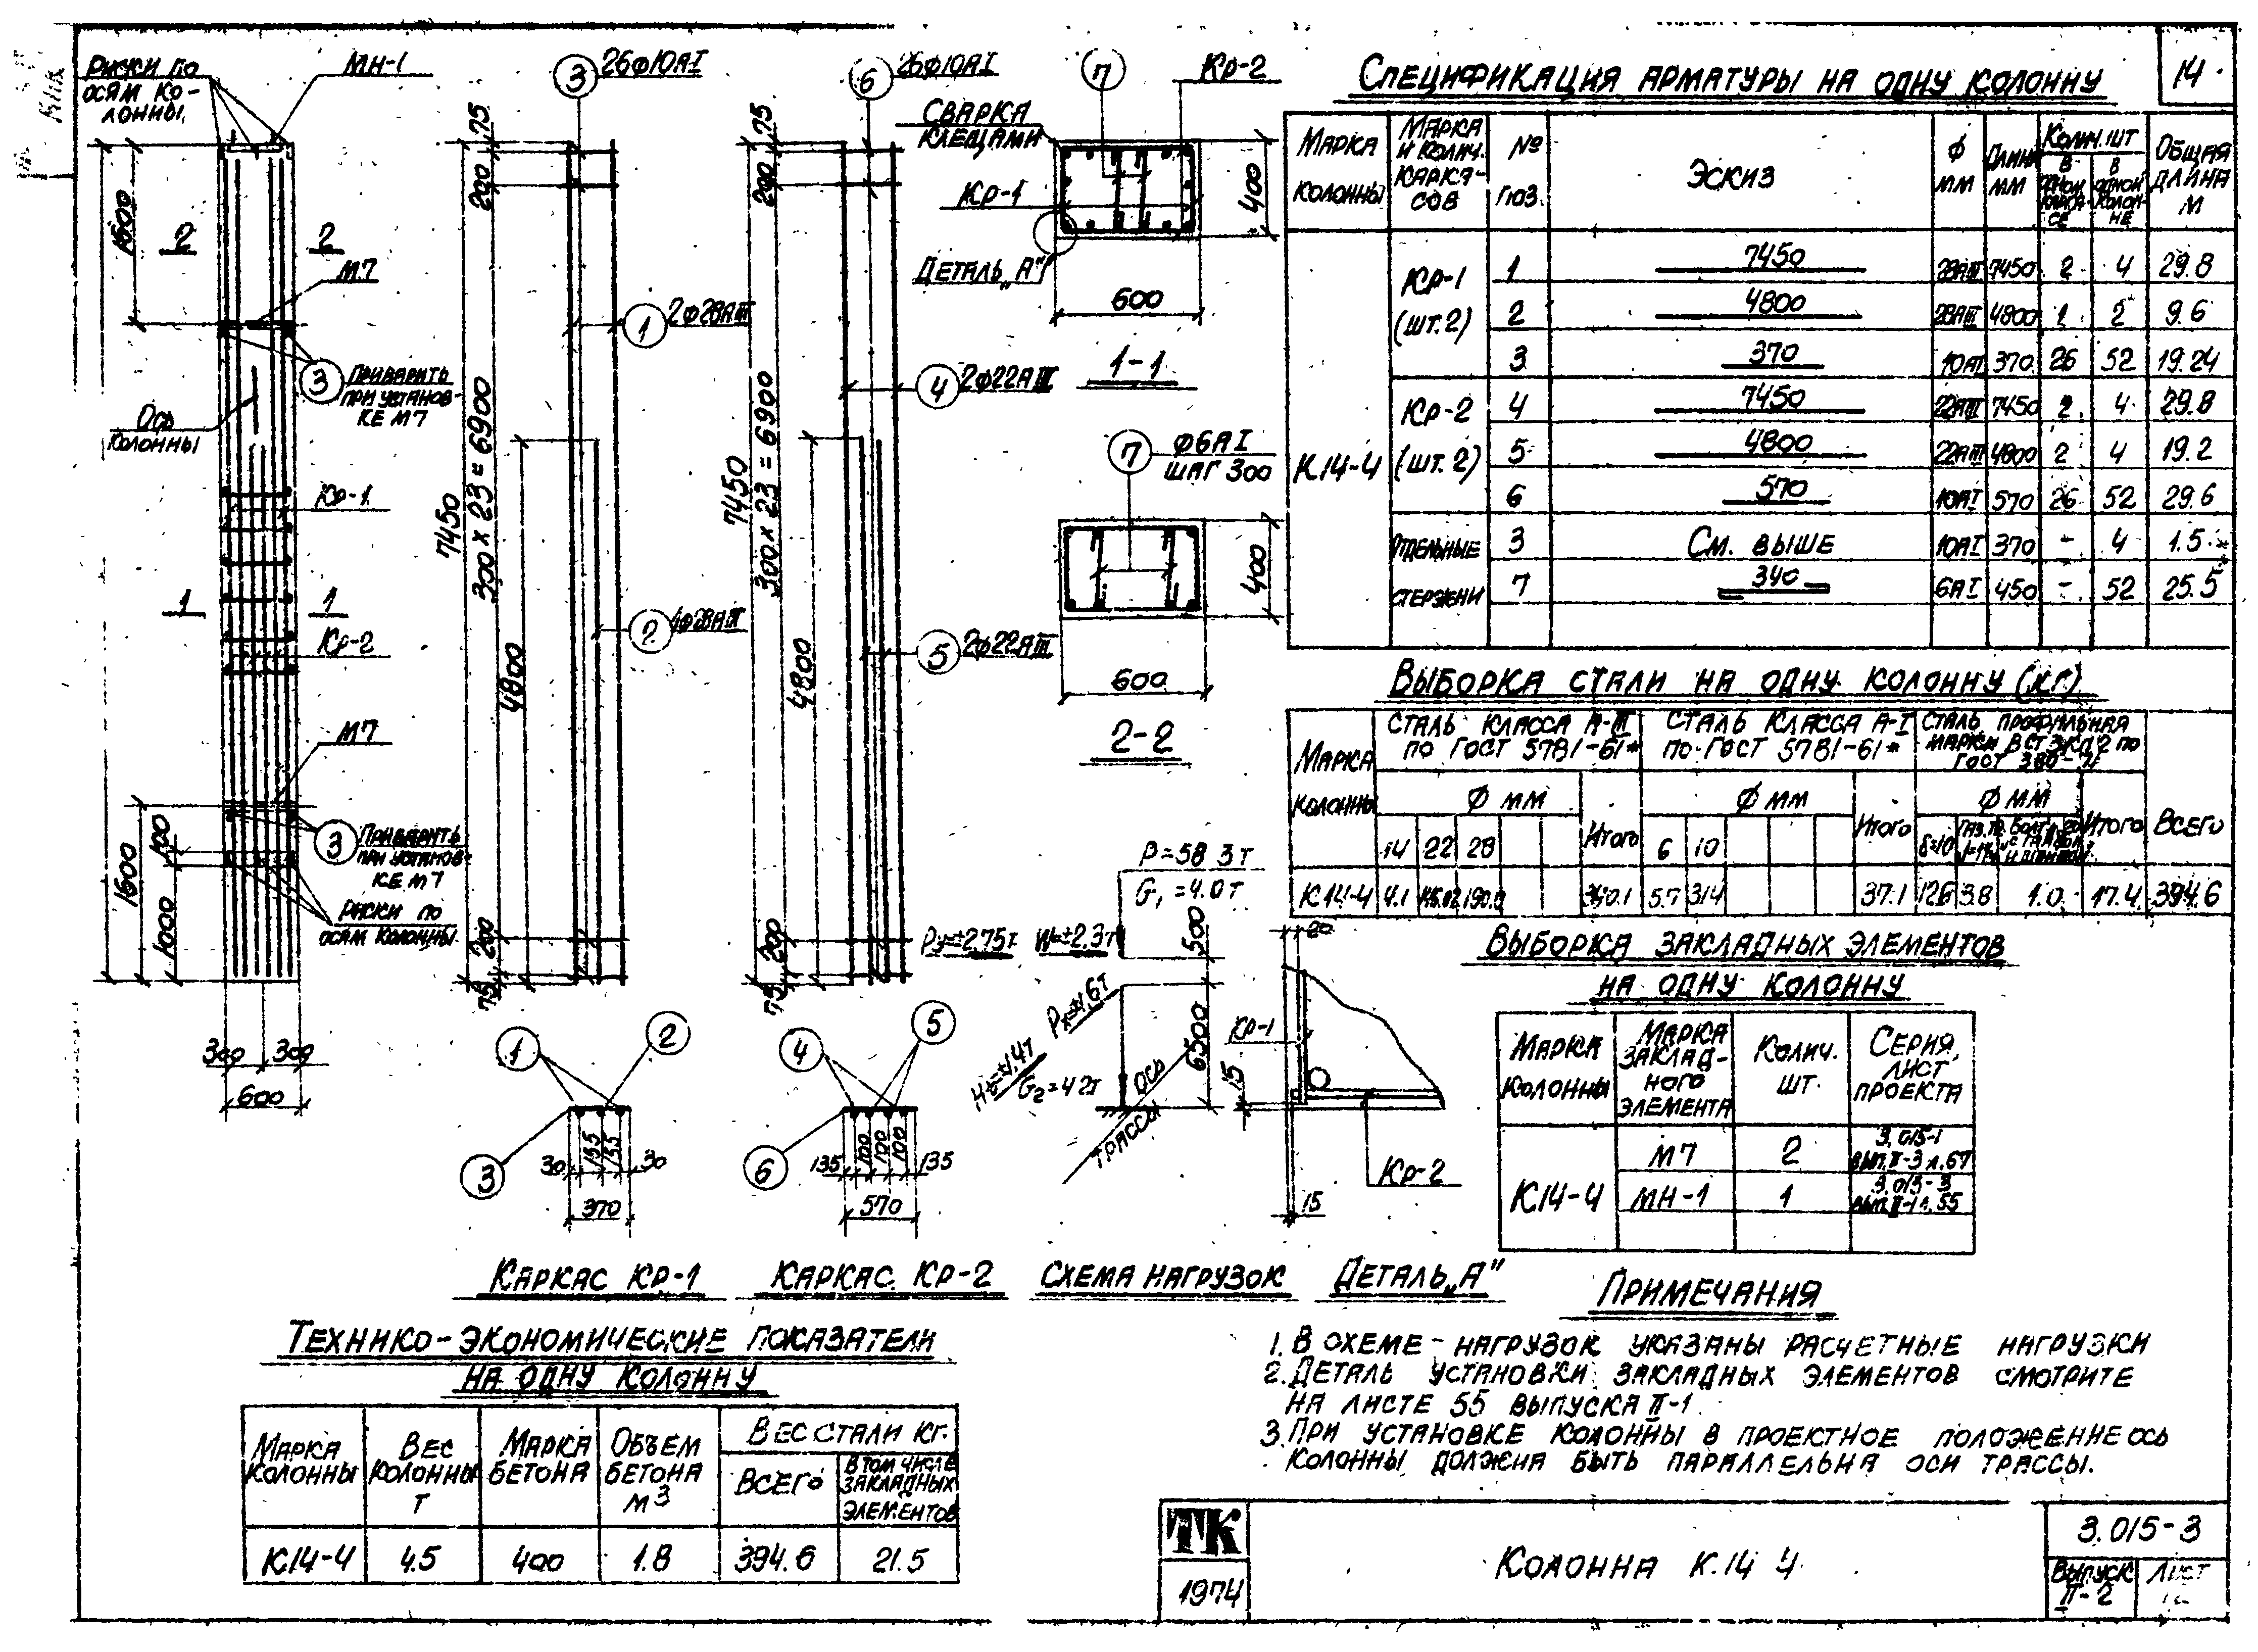 14
Риски по
осям ко-
лонны
МН-1
1600
2 2
М7
3 Приварить
при установ-
ке М7
Ось
колонны
Кр-1
1 1
Кр-2
М7
3 Приварить
при установ-
ке М7
1600
100
1000
Риски по
осям колонны
300 300
600
3 26ф10АI
75
200
7450
300х23=6900
4800
1 2ф28АIII
2
200
75
1 2
3
30 155 155 30
370
Каркас Кр-1
6 26ф10АI
75
200
7450
300х23=6900
4800
4 2ф22АIII
5 2ф22АIII
200
75
4 5
6
135 100 100 100 135
570
Каркас Кр-2
7 Кр-2
Сварка
клещами
Кр-1
Деталь „А"
400
600
1-1
7 ф6АI
шаг 300
400
600
2-2
G₁=4.0т
500
6500
G₂=4.2т
Ось
трассы
Схема нагрузок
20
Кр-1
15
Кр-2
15
Деталь „А"
Спецификация арматуры на одну колонну
Марка колонны Марка и колич. каркасов № поз. Эскиз ф мм Длина мм Колич. шт Общая длина м
в одном каркасе в одной колонне
К14-4
Кр-1 (шт.2) 1 7450 28АIII 7450 2 4 29.8
2 4800 28АIII 4800 1 2 9.6
3 370 10АI 370 26 52 19.24
Кр-2 (шт.2) 4 7450 22АIII 7450 2 4 29.8
5 4800 22АIII 4800 2 4 19.2
6 570 10АI 570 26 52 29.6
Отдельные стержни 3 См. выше 10АI 370 - 4 1.5
7 340 6АI 450 - 52 25.5
Выборка стали на одну колонну (кг)
Марка колонны Сталь класса А-III по ГОСТ 5781-61* Сталь класса А-I по ГОСТ 5781-61* Сталь профильная марки
Всего
ф мм Итого ф мм Итого ф мм Итого
14 22 28 6 10 δ=10
К14-4 4.1 5.7 31.4 37.1 12.6 3.8 1.0 17.4 394.6
Выборка закладных элементов
на одну колонну
Марка колонны Марка закладного элемента Колич. шт. Серия, лист проекта
К14-4 М7 2 3.015-1 вып. II-3 л.67
МН-1 1 3.015-3 вып. II-1 л.55
Примечания
1. В схеме нагрузок указаны расчетные нагрузки
2. Деталь установки закладных элементов смотрите
на листе 55 выпуска II-1.
3. При установке колонны в проектное положение ось
колонны должна быть параллельна оси трассы.
Технико-экономические показатели
на одну колонну
Марка колонны Вес колонны т Марка бетона Объем бетона м3 Вес стали кг.
Всего В том числе закладных элементов
К14-4 4.5 400 1.8 394.6 21.5
ТК
1974
Колонна К.14 4
3.015-3
Выпуск
II-2
Лист